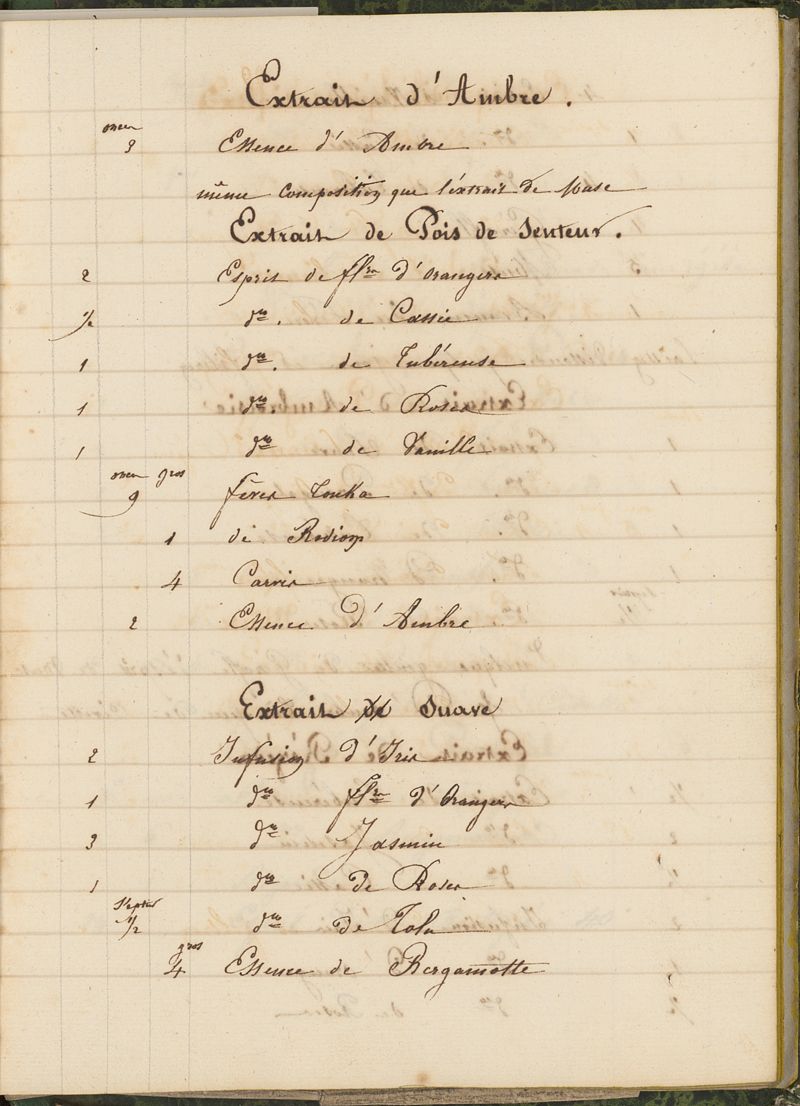 Extrait d'Ambre.
onces
3 Essence d'Ambre
même composition que l'extrait de Musc
Extrait de Pois de Senteur.
2 Esprit de flrs d'orangers
1/2 do. de Cassie
1 do. de Tubéreuse
1 do. de Roses
1 do de Vanille
onces gros
9 fèves Tonka
1 de Rodioys
4 Carvis
2 Essence d'Ambre
Extrait de Suave
2 Infusion d'Iris
1 do flrs d'Orangers
3 do Jasmin
1 do de Roses
1/2 do de Tolu
gros
4 Essence de Bergamotte